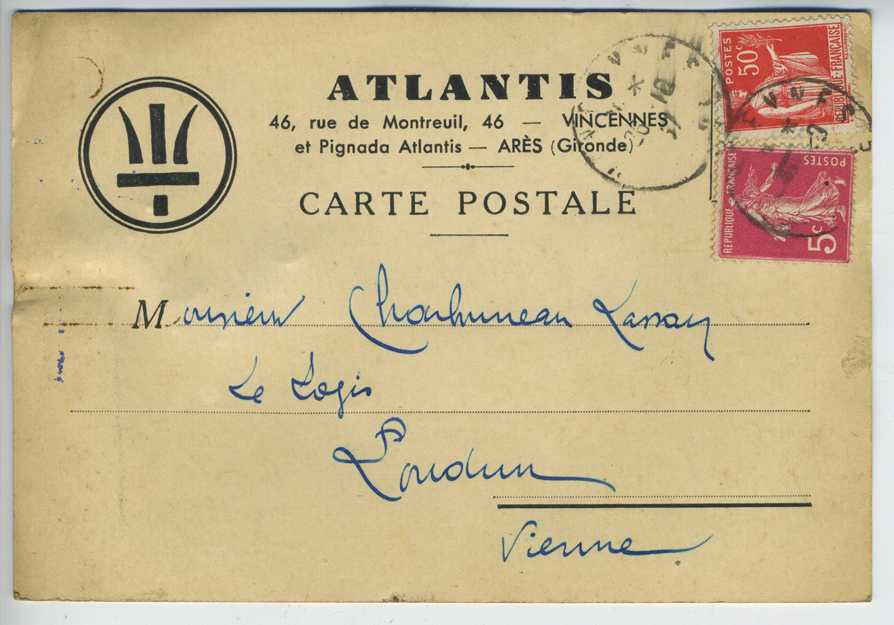 ATLANTIS
46, rue de Montreuil, 46 — VINCENNES
et Pignada Atlantis — ARÈS (Gironde)
CARTE POSTALE
POSTES
50c
REPUBLIQUE FRANÇAISE
REPUBLIQUE FRANÇAISE
POSTES
5c
Monsieur Charbonneau Lassay
Le Logis
Loudun
Vienne